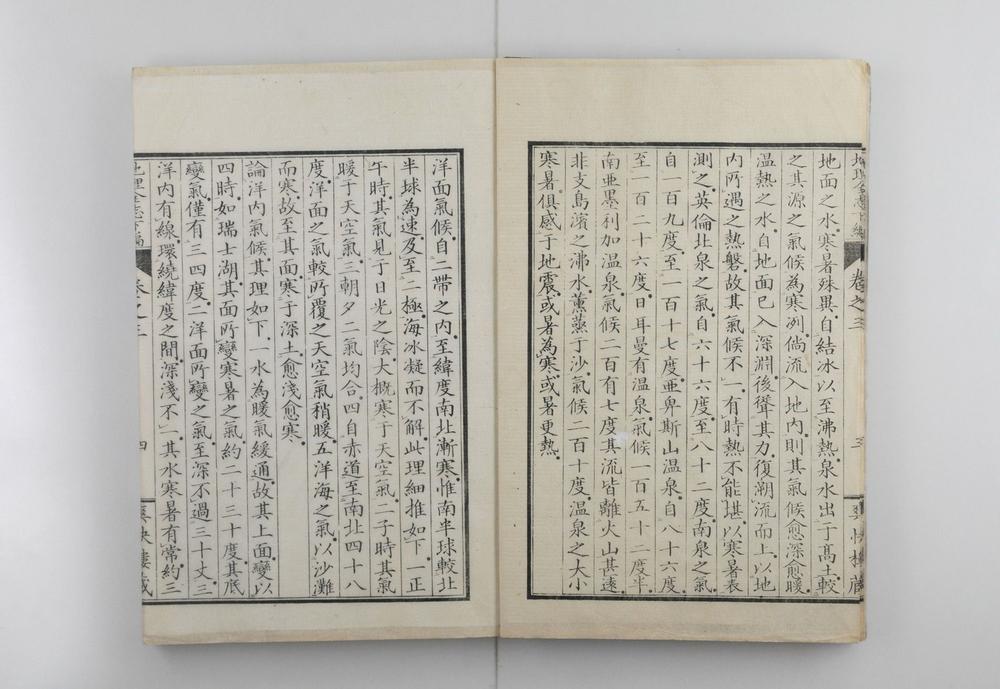 地理全志下編 卷之三 三 爽快樓藏
地面之水。寒暑殊異。自結冰以至沸熱。泉水出于高土較
之其源之氣候為寒冽。倘流入地內則其氣候愈深愈暖。
溫熱之水。自地面已入深淵。後聳其力。復潮流而上。以地
內所遇之熱磐。故其氣候不一。有時熱不能堪。以寒暑表
測之。英倫北泉之氣。自六十六度。至八十二度。南泉之氣
自一百九度。至一百十七度。亜卑斯山溫泉。自八十六度。
至一百二十六度。日耳曼有溫泉。氣候一百五十二度半。
南亜墨利加溫泉。氣候二百有七度。其流皆離火山甚遠。
非支島濱之沸水。薰蒸于沙。氣候二百十度。溫泉之大小
寒暑。俱感于地震。或暑為寒。或暑更熱。
洋面氣候。自二帶之內。至緯度南北漸寒。惟南半球較北
半球為速。及至二極。海冰凝而不解。此理細推如下。一正
午時其氣見于日光之陰。大概寒于天空氣。二子時其氣
暖于天空氣。三朝夕二氣均合。四自赤道至南北四十八
度。洋面之氣。較所覆之天空氣稍暖。五洋海之氣。以沙灘
而寒。故至其面寒于深土。愈淺愈寒。
論洋內氣候。其理如下。一水為暖氣緩通。故其上面變以
四時。如瑞士湖。其面所變寒暑之氣。約二十三十度。其底
變氣僅有三四度。二洋面所變之氣。至深不過三十丈。三
洋內有線。環繞緯度之間。深淺不一。其水寒暑有常。約三
地理全志下編 卷之三 四 爽快樓藏